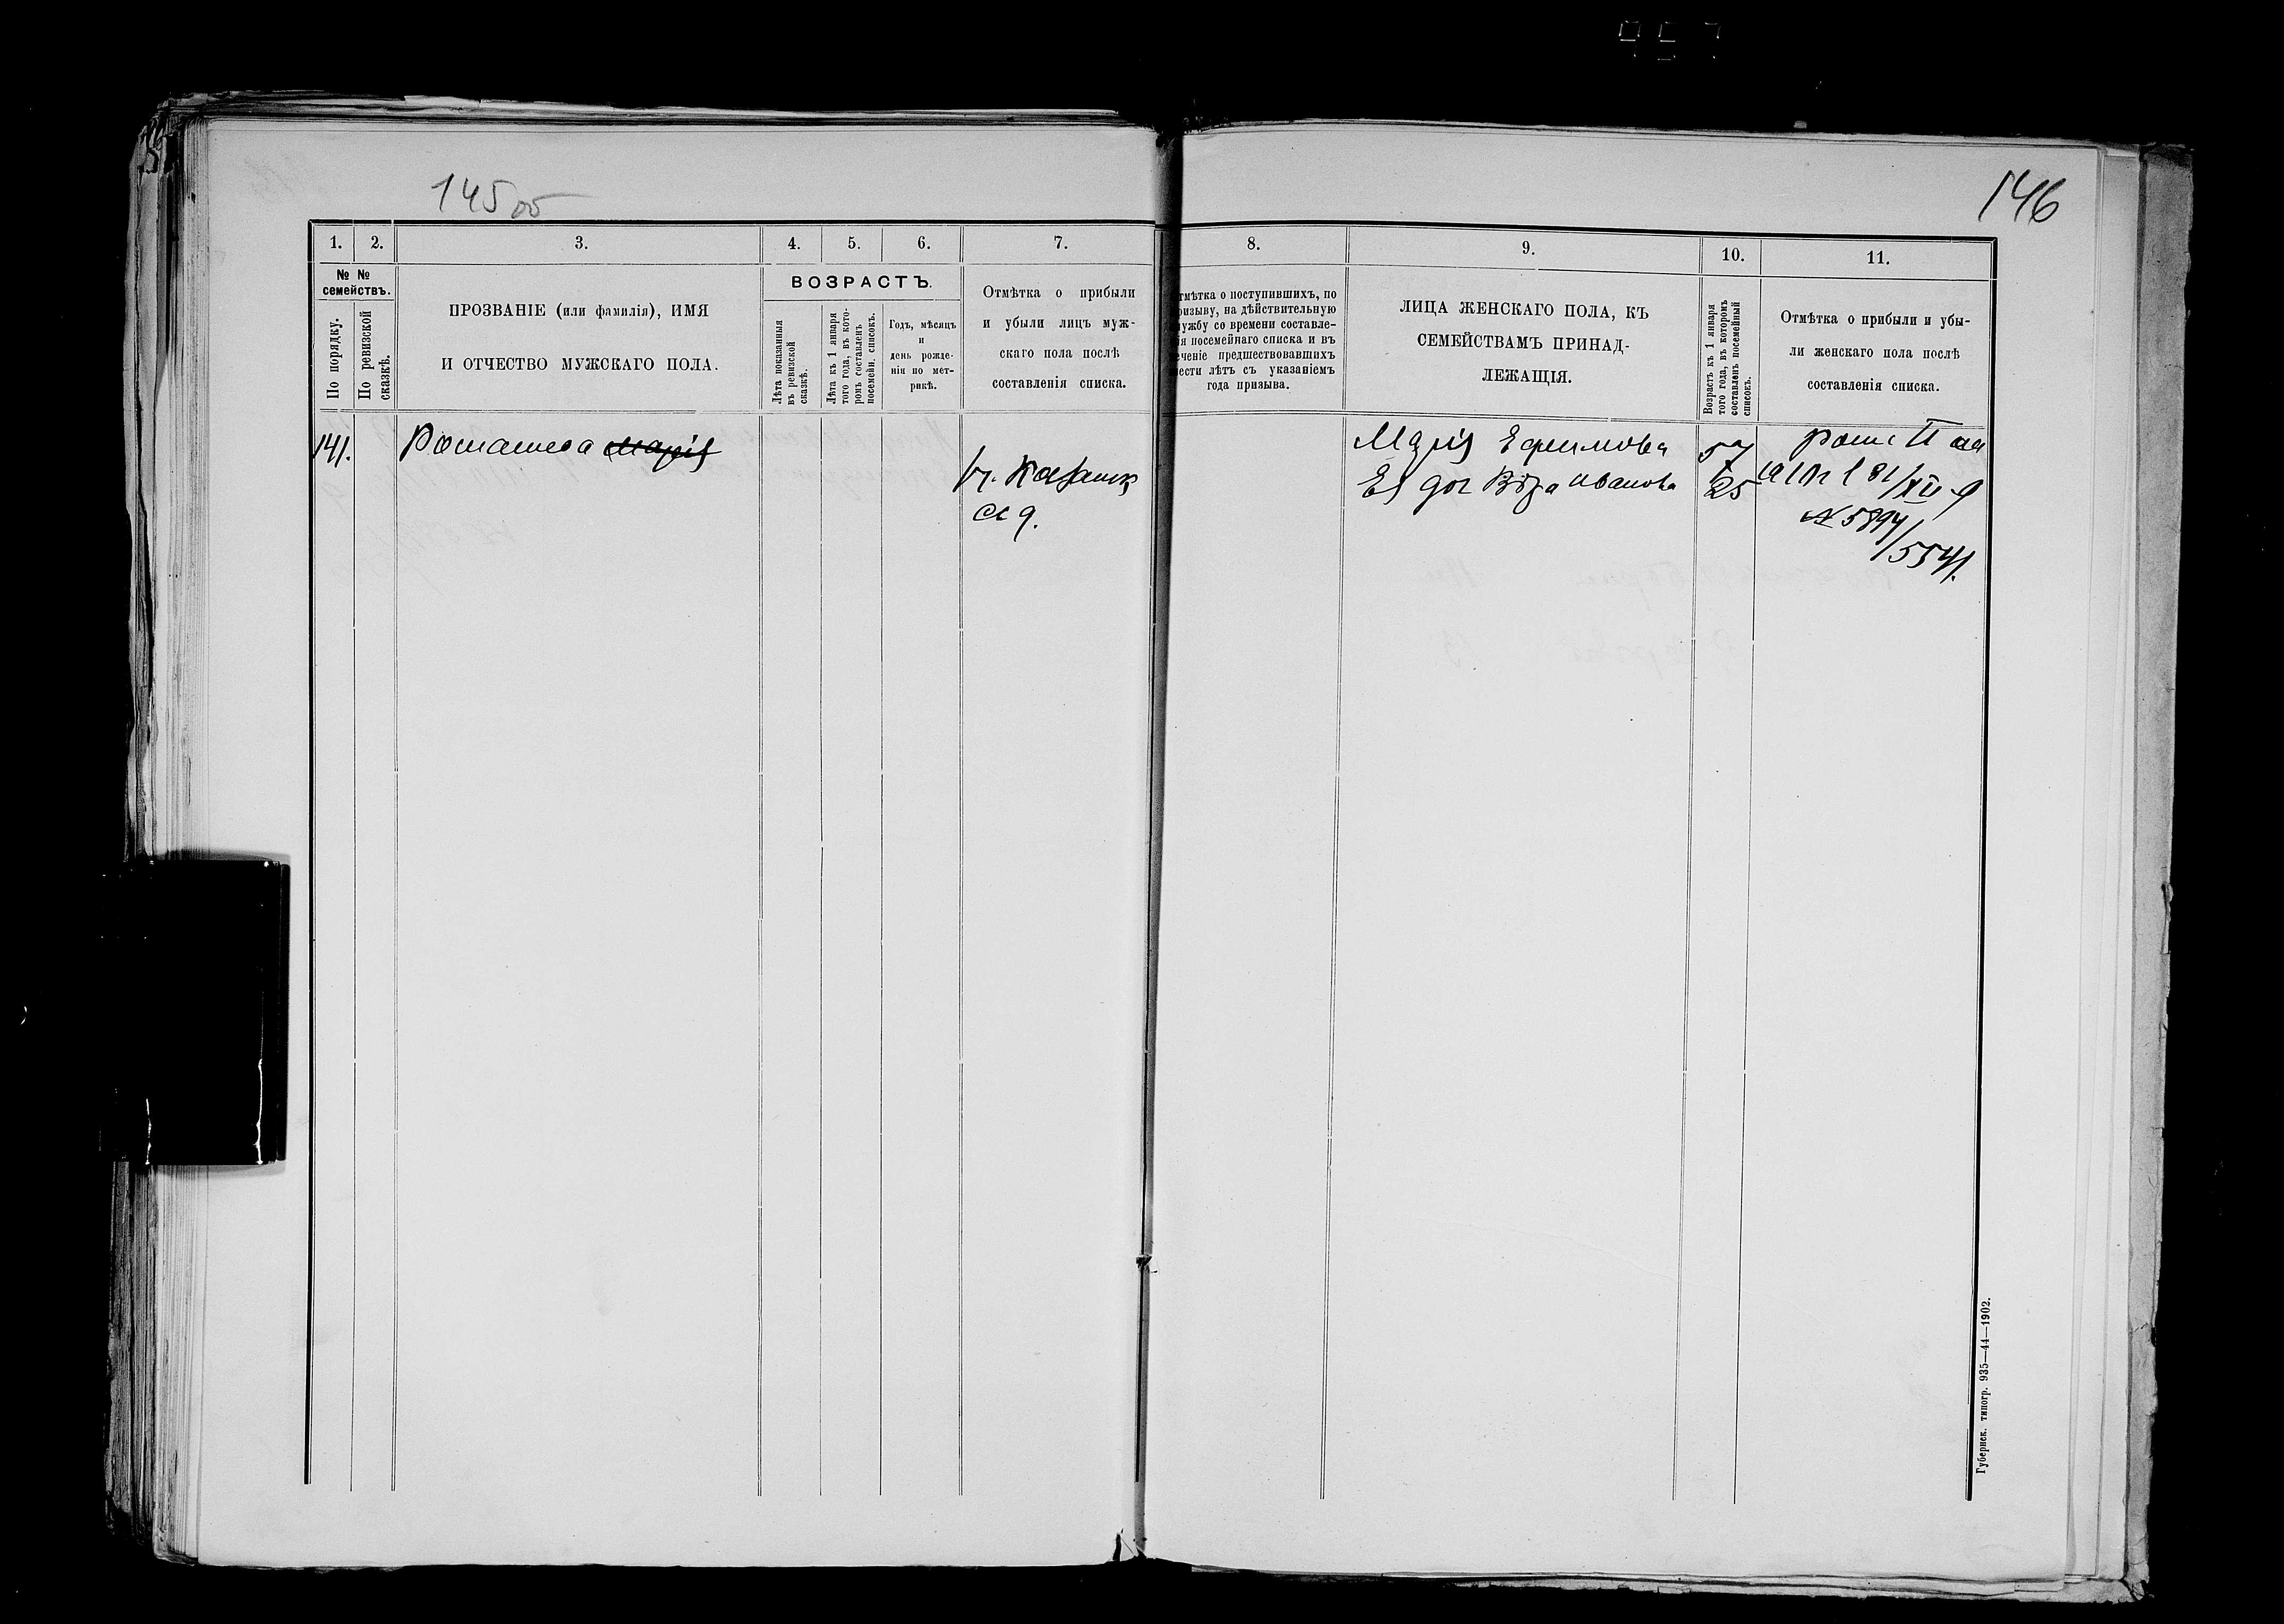 145 об
146
1. 2. 3. 4. 5. 6. 7. 8. 9. 10. 11.
№ № семействъ.
По порядку.
По ревизской сказкѣ.
ПРОЗВАНІЕ (или фамилія), ИМЯ
И ОТЧЕСТВО МУЖСКАГО ПОЛА.
ВОЗРАСТЪ.
Лѣта показанныя
въ ревизской
сказкѣ.
Лѣта къ 1 января
того года, въ кото-
ромъ составленъ
посемейн. списокъ.
Годъ, мѣсяцъ
и
день рожде-
нія по мет-
рикѣ.
Отмѣтка о прибыли
и убыли лицъ муж-
скаго пола послѣ
составленія списка.
тмѣтка о поступившихъ, по
ризыву, на дѣйствительную
ужбу со времени составле-
ія посемейнаго списка и въ
еченіе предшествовавшихъ
ести лѣтъ съ указаніемъ
года призыва.
ЛИЦА ЖЕНСКАГО ПОЛА, КЪ
СЕМЕЙСТВАМЪ ПРИНАД-
ЛЕЖАЩІЯ.
Возрастъ къ 1 января
того года, въ которомъ
составленъ посемейный
списокъ.
Отмѣтка о прибыли и убы-
ли женскаго пола послѣ
составленія списка.
141. Ромашева Марія
Марія Ефимова 57
Ея доч Вѣра Иванова 25
№ 5894/
5541.
Губернск. типогр. 935—44—1902.